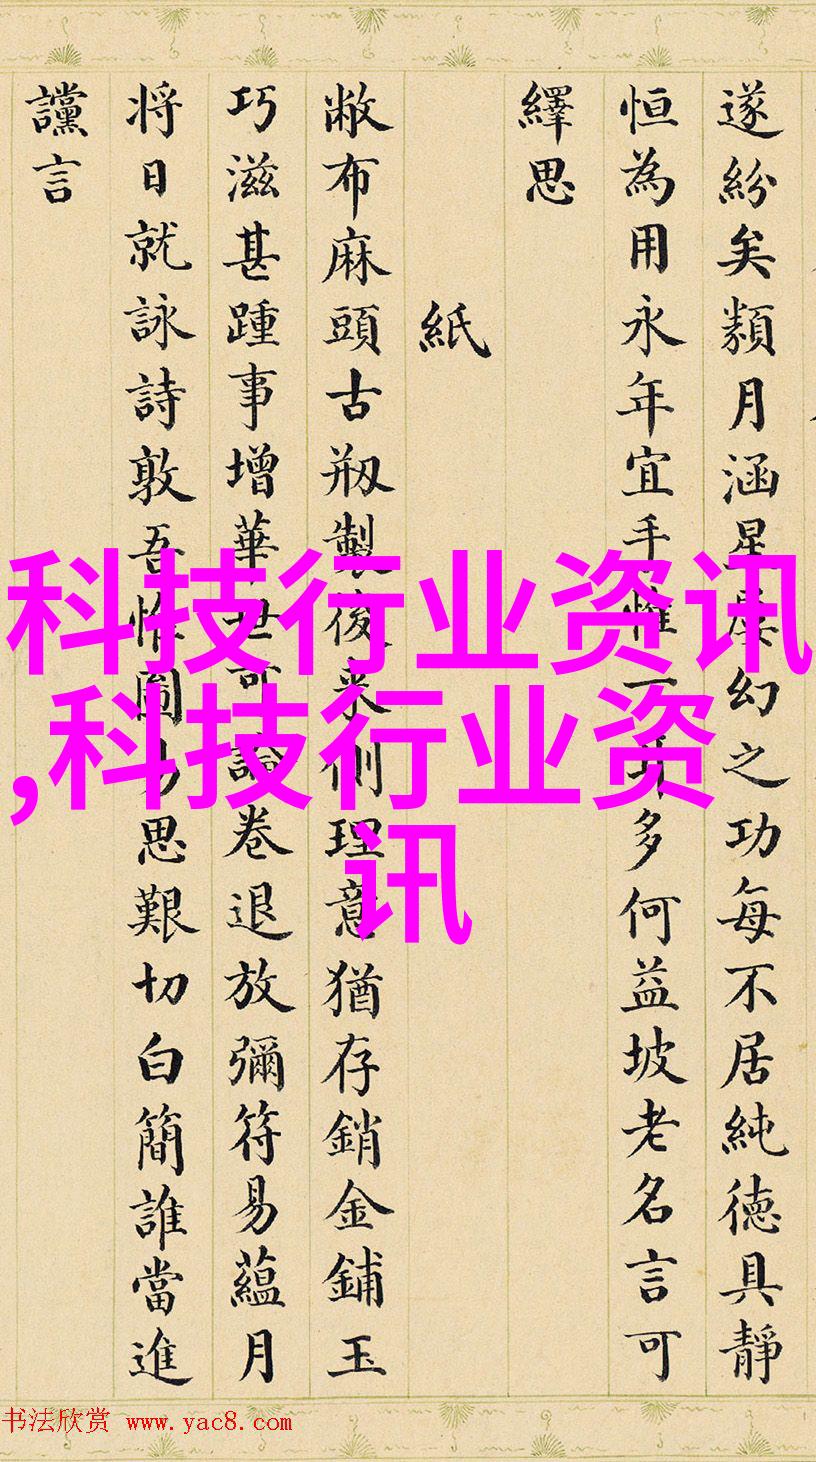 遂紛矣纇月涵星虚幻之功每不居純德具靜
恒為用永年宜手惟一弄多何益坡老名言可
繹思
紙
敝布麻頭古刱製後来側理意猶存銷金鋪玉
巧滋甚踵事增華世可論卷退放彌符易蘊月
将日就詠詩敦吾怍圖力思艱切白簡誰當進
讜言
科技行业资讯
,科技行业资
讯
书法欣赏 www.yac8.com